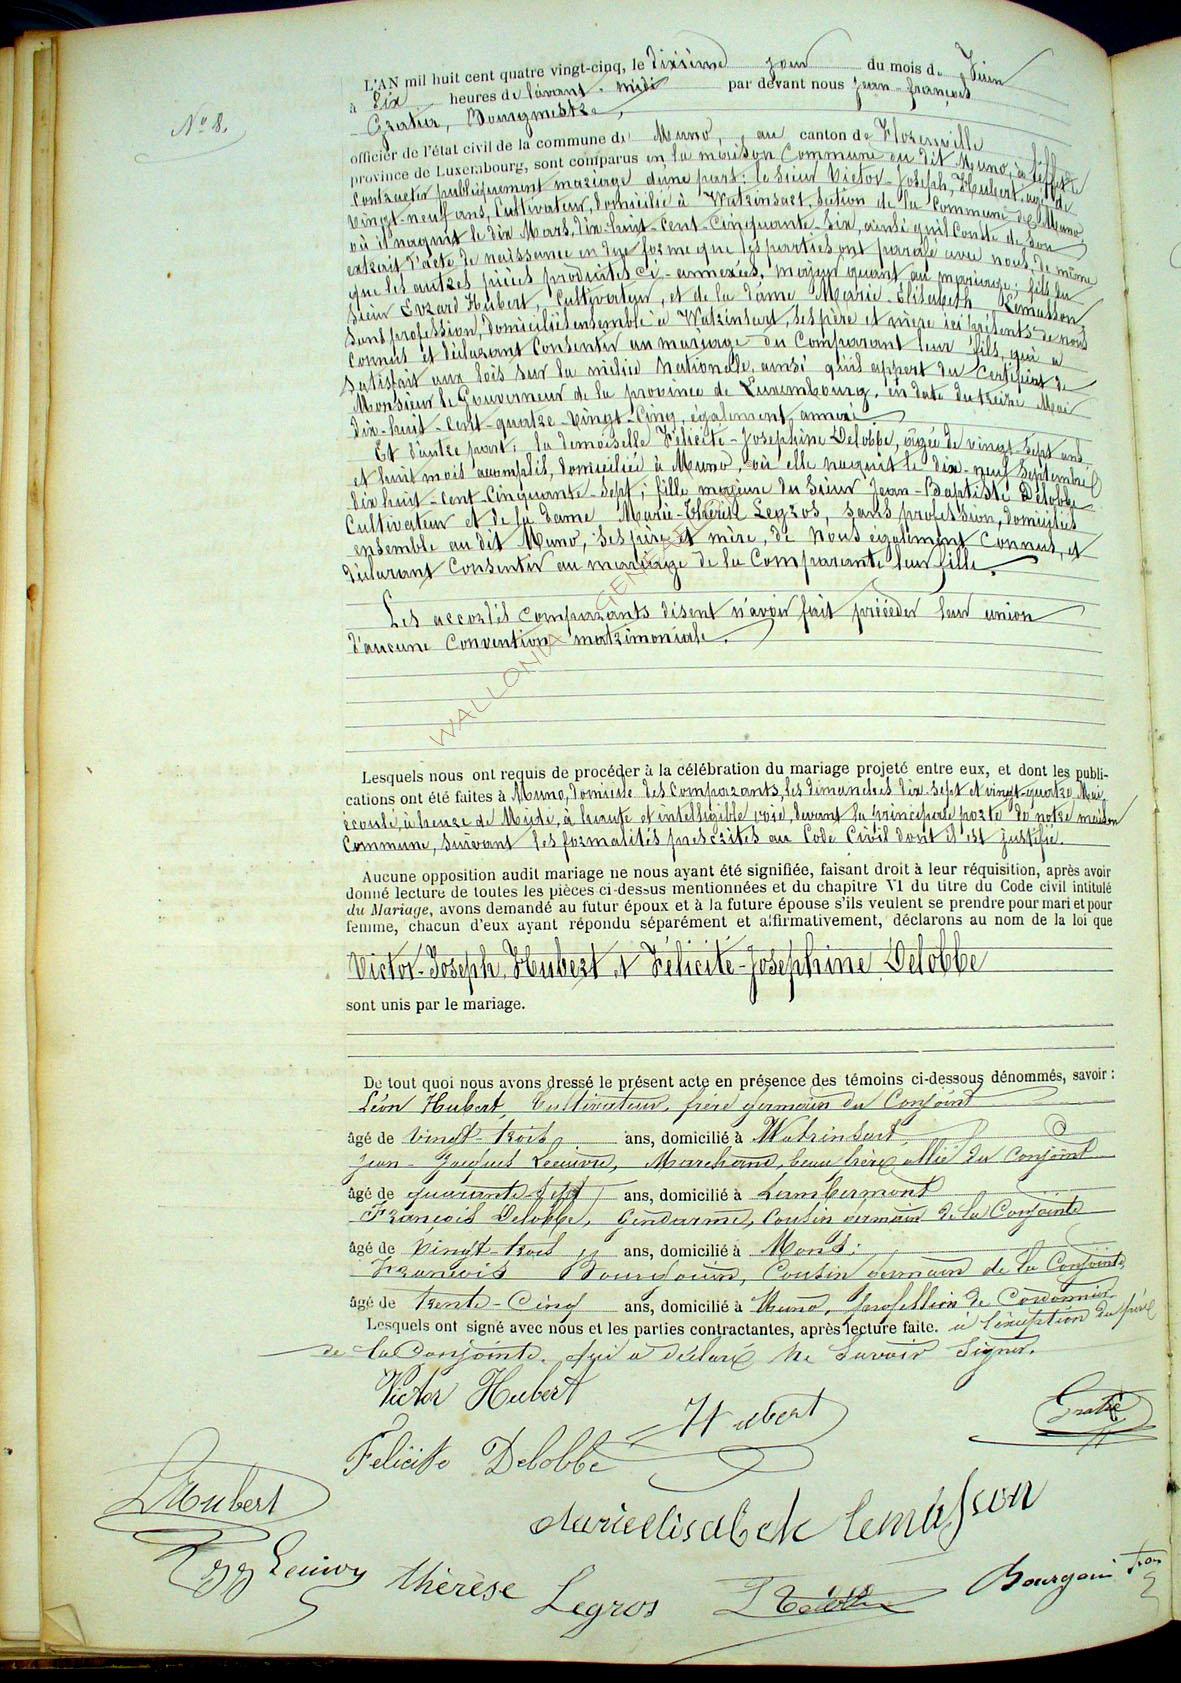 L'AN mil huit cent quatre vingt-cinq, le dixième jour du mois de Juin
N° 8.
à dix heures de l'avant-midi par devant nous Jean-françois
Gratia, Bourgmestre,
officier de l'état civil de la commune de Muno, au canton de Florenville
province de Luxembourg, sont comparus en la maison Commune du dit Muno, à l'effet de
Contracter publiquement mariage d'une part: le sieur Victor-Joseph, Hubert, agé de
vingt-neuf ans, Cultivateur, domicilié à Watrinsart, section de la Commune de Muno,
où il naquit le dix Mars, dix-huit-cent-Cinquante-six, ainsi qu'il Conste de son
extrait d'acte de naissance en due forme que les parties ont parafé avec nous, de même
que les autres pièces produites ci-annexées, majeur quant au mariage; fils du
Sieur Evrard Hubert, Cultivateur, et de la Dame Marie-Elisabeth Lemasson,
Sans profession, domiciliés ensemble à Watrinsart, ses père et mère ici présents de nous
Connus et déclarant Consentir au mariage du Comparant leur fils, qui a
Satisfait aux lois sur la milice Nationale, ainsi qu'il appert du Certificat de
Monsieur le Gouverneur de la province de Luxembourg, en date du treize Mai
dix-huit-Cent-quatre-Vingt-Cinq, également annexé
Et d'autre part; la demoiselle Félicité-Josephine Delobbe, âgée de vingt-sept ans
et huit mois accomplis, domiciliée à Muno, où elle naquit le dix-neuf Septembre
dix huit-cent-Cinquante-sept; fille majeure du Sieur Jean-Baptiste Delobbe
Cultivateur et de la Dame Marie-Thérèse Legros, Sans profession, domiciliés
ensemble au dit Muno, ses père et mère, de Nous également Connus, et
déclarant Consentir au mariage de la Comparante leur fille.
Les accordés Comparants disent n'avoir fait précéder leur union
d'aucune Convention matrimoniale.
Lesquels nous ont requis de procéder à la célébration du mariage projeté entre eux, et dont les publi-
cations ont été faites à Muno, domicile des Comparants, les dimanches dix-sept et vingt-quatre Mai
écoulé, à heure de Midi, à haute et intelligible voie, devant la principale porte de notre maison
Commune, suivant les formalités prescrites au Code Civil dont il est justifié.
Aucune opposition audit mariage ne nous ayant été signifiée, faisant droit à leur réquisition, après avoir
donné lecture de toutes les pièces ci-dessus mentionnées et du chapitre VI du titre du Code civil intitulé
du Mariage, avons demandé au futur époux et à la future épouse s'ils veulent se prendre pour mari et pour
femme, chacun d'eux ayant répondu séparément et affirmativement, déclarons au nom de la loi que
Victor-Joseph, Hubert et Félicité-Josephine Delobbe
sont unis par le mariage.
De tout quoi nous avons dressé le présent acte en présence des témoins ci-dessous dénommés, savoir:
Léon Hubert, Cultivateur, frère germain du Conjoint
âgé de vingt-trois ans, domicilié à Watrinsart
Jean-Jacques Marchand, beau frère allié du Conjoint
âgé de quarante-sept ans, domicilié à Lambermont
François Delobbe, Gendarme, Cousin germain de la Conjointe
âgé de Vingt-trois ans, domicilié à Mons;
François Bourgouin, Cousin germain de la Conjointe,
âgé de trente-Cinq ans, domicilié à Muno, profession de Cordonnier
Lesquels ont signé avec nous et les parties contractantes, après lecture faite. à l'exception du père
de la Conjointe, qui a déclaré Ne Savoir Signer.
Victor Hubert
Hubert
Gratia
Felicité Delobbe
LHubert
marieelisabek lemasson
JJ
thérèse Legros
Bourgoin
WALLONIA